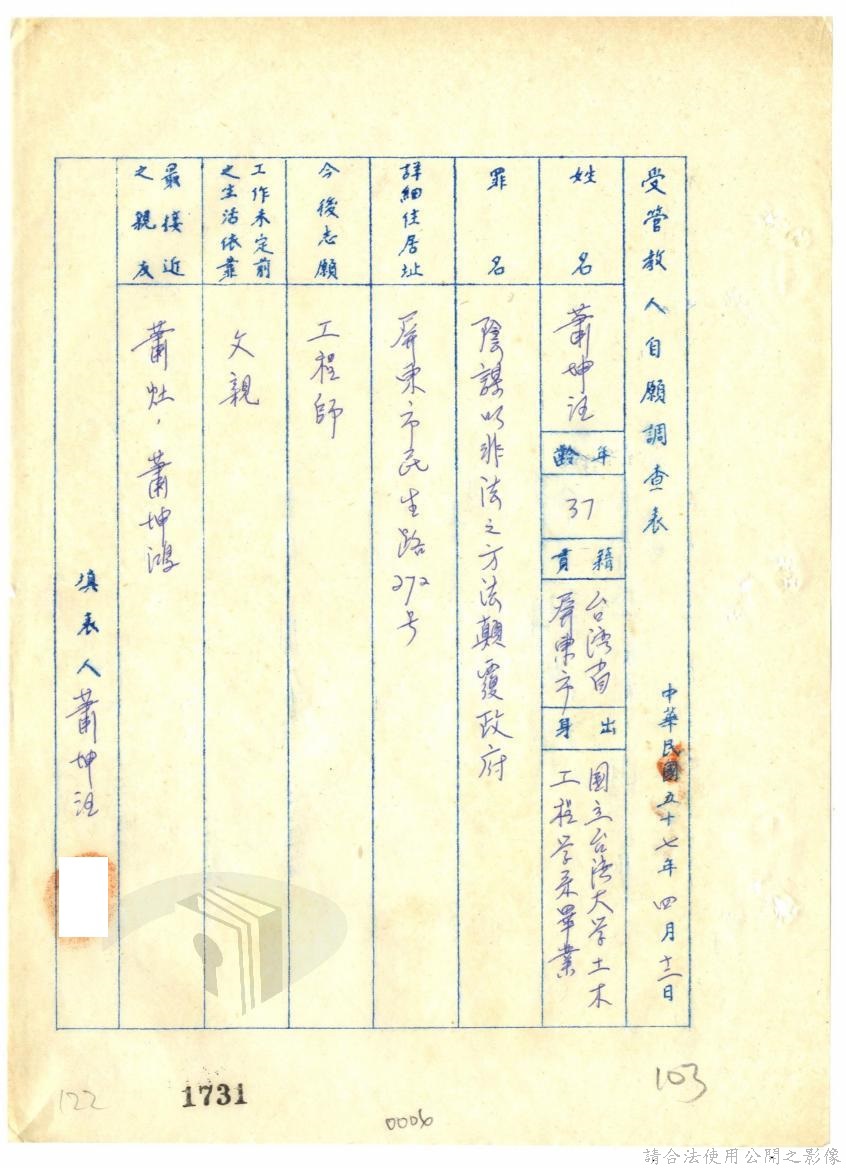 受管教人自願調查表
中華民國五十七年四月十二日
姓名
蕭坤注
年齡
37
籍貫
台湾省
屏東市
出身
国立台湾大学土木
工程学系畢業
罪名
陰謀以非法之方法顛覆政府
詳細住居址
屏東市民生路272号
今後志願
工程師
工作未定前
之生活依靠
父親
最接近
之親友
蕭灶,蕭坤鴻
填表人蕭坤注
122
1731
0006
103
請合法使用公開之影像